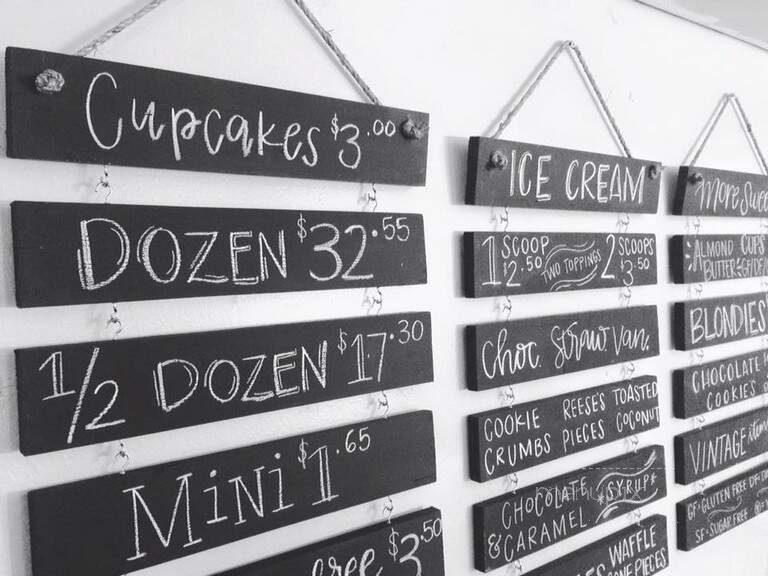 Cupcakes $3.00
DOZEN $32.55
1/2 DOZEN $17.30
MiNi $1.65
free $3.50
ICE CREAM
1 SCOOP $2.50 TWO TOPPINGS 2 SCOOPS $3.50
Choc. Straw Van.
COOKIE CRUMBS REESE'S PIECES TOASTED COCONUT
CHOCOLATE & CARAMEL *SYRUP*
WAFFLE
PIECES
More
ALMOND
CUPS
BUTTER
BLONDIES
CHOCOLATE
COOKIES
VINTAGE
GF=GLUTEN FREE
SF=SUGAR FREE